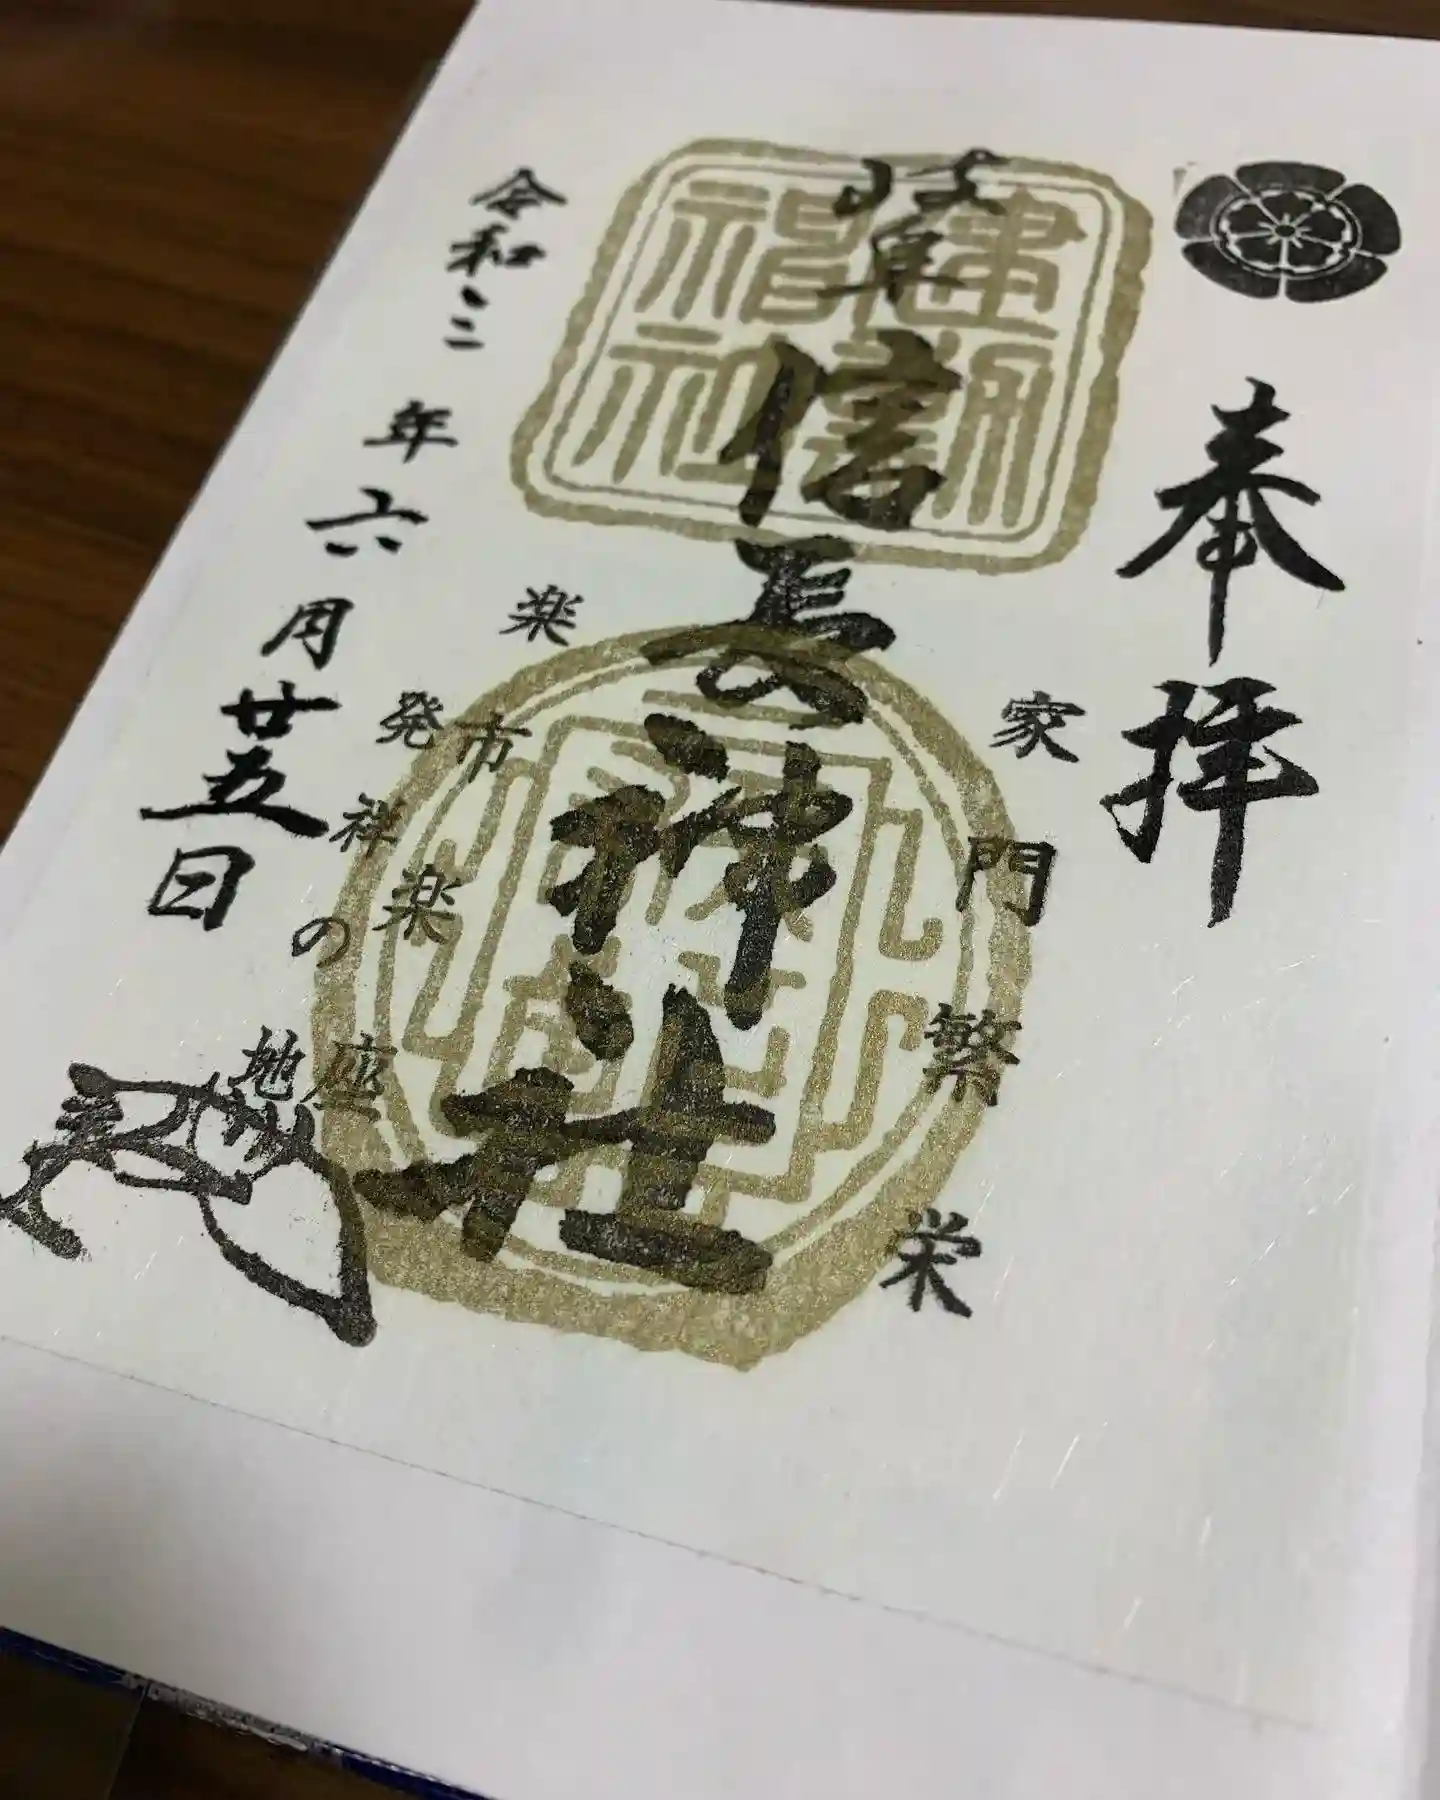 奉拝
家門繁栄
建勲神社
岐阜信長神社
楽市楽座
発祥の地
令和三年六月廿五日